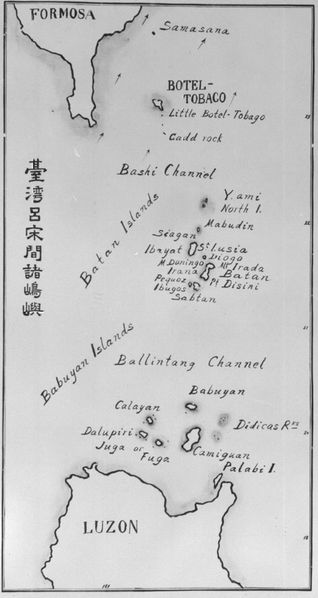 FORMOSA
Samasana
BOTEL-
TOBACO
Little Botel-Tobago
Cadd rock
Bashi Channel
臺灣呂宋間諸嶋嶼
Batan Islands
Y.ami
North I.
Mabudin
Siagan
Ibayat
St Lusia
Diogo
M. Duningo
Mt Irada
Irana
Batan
Pequoz
Pt Disini
Ibugos
Sabtan
Babuyan Islands
Ballintang Channel
Babuyan
Calayan
Didicas Rks
Dalupiri
Juga or
Fuga
Camiguan
Palabi I.
LUZON